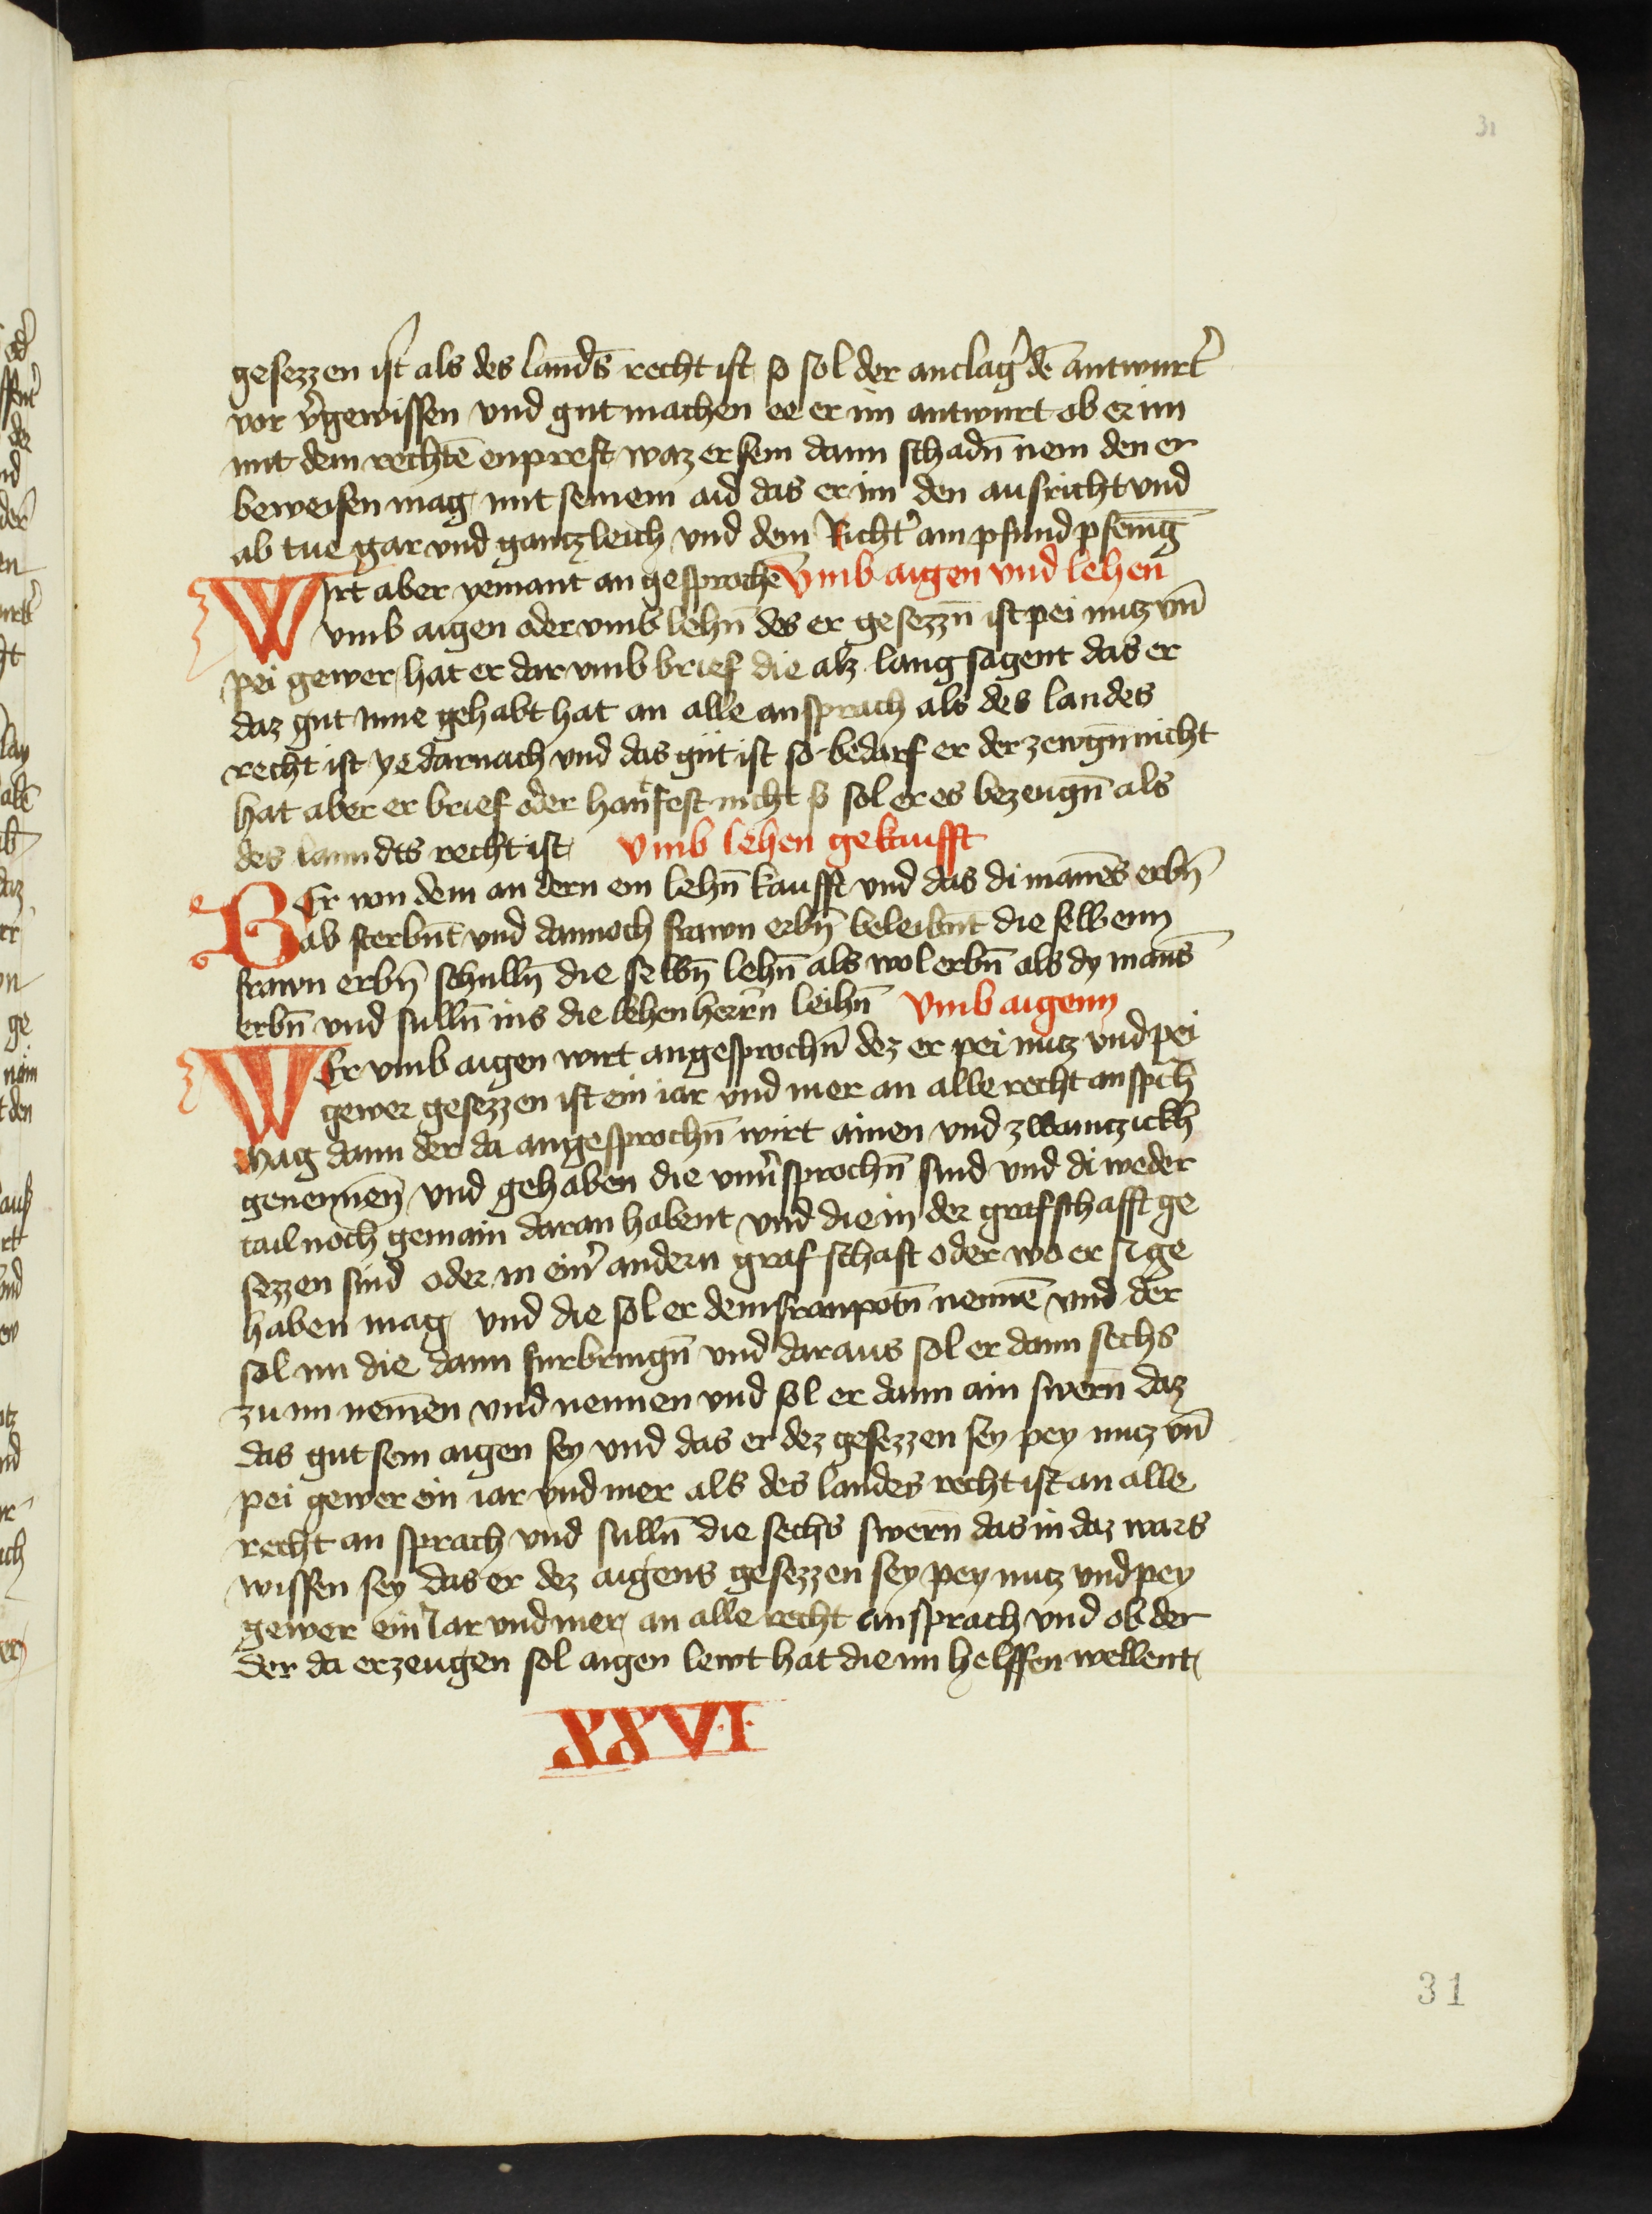 31
gesezzen ist als des lands̄ recht ist so sol der anclag̛ dē antwurt̛
vor v̛gewissen vnd gut machen ee er im antwurt ob er im
mit dem rechtē enprest waz er sein dann schadn̄ nem den er
beweisen mag mit seinem aid das er im den ausricht vnd
ab tue gar vnd gantzleich vnd dem Richt̛ ain pfund pfenīg
Wirt aber yemant an gesprochē Vmb aigen vnd lehen
vmb aigen oder vmb lehn̄ des er gesezzn̄ ist pei nutz vn̄
pei gewer hat er dar vmb brief die alz lang sagent das er
daz gut inne gehabt hat an alle ansprach als des landes
recht ist ye darnach vnd das gut ist so bedarf er der zewgn̄ nicht
hat aber er brief oder hantfest nicht so sol er es bezeugn̄ als
des lanndts recht ist Vmb lehen gekaufft
Er von dem an dern ein lehn̄ kaufft vnd das di mannēs erbn̄
ab sterbnt̄ vnd dannoch frawn erbn̄ beleibnt̄ die selbenn
frawn erbn̄ schulln̄ die selbn̄ lehn̄ als wol erbn̄ als dy manns̄
erbn̄ vnd sulln̄ ins die lehen herrn̄ leihn̄ Vmb aigenn
WEr vmb aigen wirt angesprochn̄ dez er pei nutz vnd pei
gewer gesezzen ist ein iar vnd mer an alle recht anspch̄
mag dann der da angesprochn̄ wirt ainen vnd zwaintzickh
genennen̄ vnd gehaben die vnưsprochn̄ sind vnd di weder
tail noch gemain daran habent vnd die in der grafschafft ge
sezzen sind oder in ein̛ andern grafschaft oder wo er si ge
haben mag vnd die sol er dem franpotn̄ nennē vnd der
sol im die dann furbringn̄ vnd daraus sol er dann sechs
zu im nemen vnd nennen vnd sol er dann ain swern̄ daz
das gut sein aigen sey vnd das er dez gesezzen sey pey nutz vn̄
pei gewer ein iar vnd mer als des landes recht ist an alle
recht an sprach vnd sulln̄ die sechs swern̄ das in daz wars
wissen sey das er dez aigens gesezzen sey pey nutz vnd pey
gewer ein Iar vnd mer an alle recht ansprach vnd ob der
der da erzeugen sol aigen lewt hat die im helffen wellent
XXVI
31